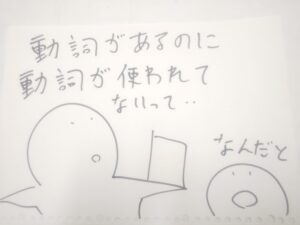 動詞があるのに
動詞が使われて
ないって‥
なんだと